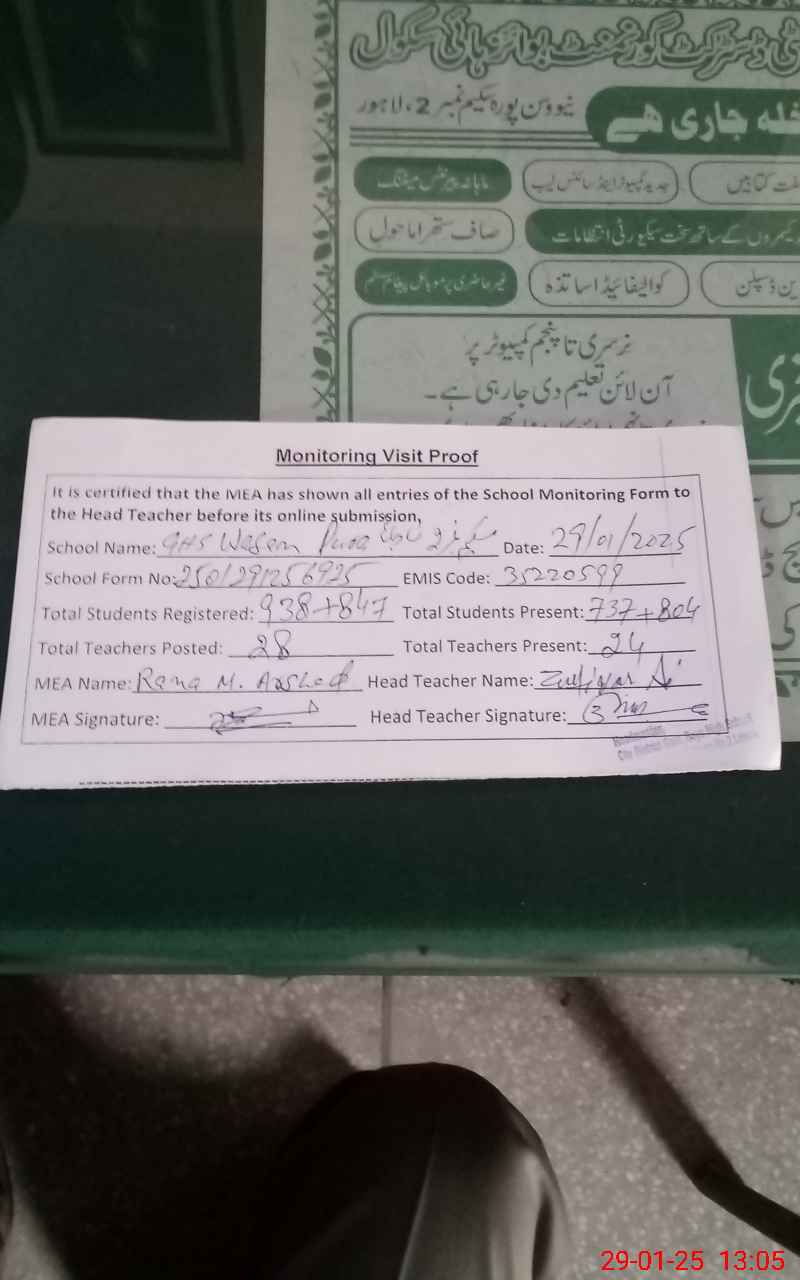 ٹی ڈسٹرکٹ گورنمنٹ بوائز ہائی سکول
نیو وسن پورہ سکیم نمبر 2، لاہور
خلہ جاری ھے
ماہانہ پیرنٹس میٹنگ
جدید کمپیوٹر اینڈ سائنس لیب
فت کتابیں
صاف ستھرا ماحول
کیمروں کے ساتھ سخت سیکیورٹی انتظامات
غیر حاضری پر موبائل پیغام سسٹم
کوالیفائیڈ اساتذہ
ین ڈسپلن
نرسری تا پنجم کمپیوٹر پر
آن لائن تعلیم دی جا رہی ہے۔
Monitoring Visit Proof
It is certified that the MEA has shown all entries of the School Monitoring Form to
the Head Teacher before its online submission,
School Name: GHS Wasan Pura Date: 29/01/2025
School Form No: 2501291256925 EMIS Code: 35220599
Total Students Registered: 938+847 Total Students Present: 737+804
Total Teachers Posted: 28 Total Teachers Present: 24
MEA Name: Rana M. Arshad Head Teacher Name: Zulfiqar Ali
MEA Signature: Head Teacher Signature:
29-01-25 13:05